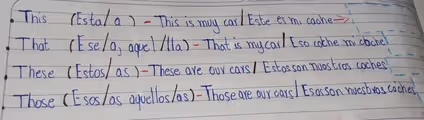 This (Esta/a) - This is muy car/Este es mi coche
That (Ese/a, aquel/lla) - That is my car/Ese cothe mi coche
These (Estos/as) - These are our cars/Estos son nuestros coches
Those (Esos/as aquellos/as) - Those are our cars/Esos son nuestros coches